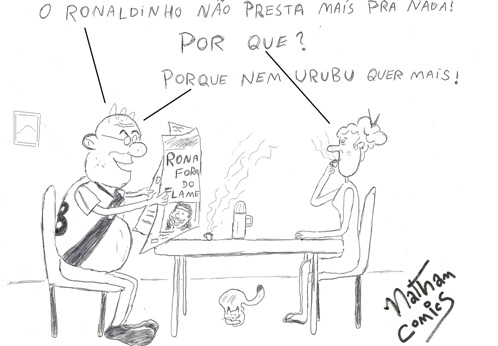 O RONALDINHO NÃO PRESTA MAIS PRA NADA!
POR QUE?
PORQUE NEM URUBU QUER MAIS!
RONA
FORA
DO
FLAME
Natham
Comics